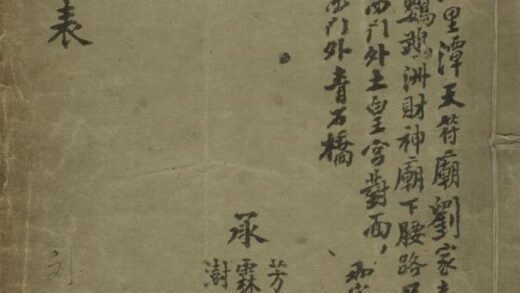 里潭天符廟劉家
鸚鵡洲財神廟下腰路
西门外土皇宮對面，
西门外青石橋
承
霖芳
澍
表
刘